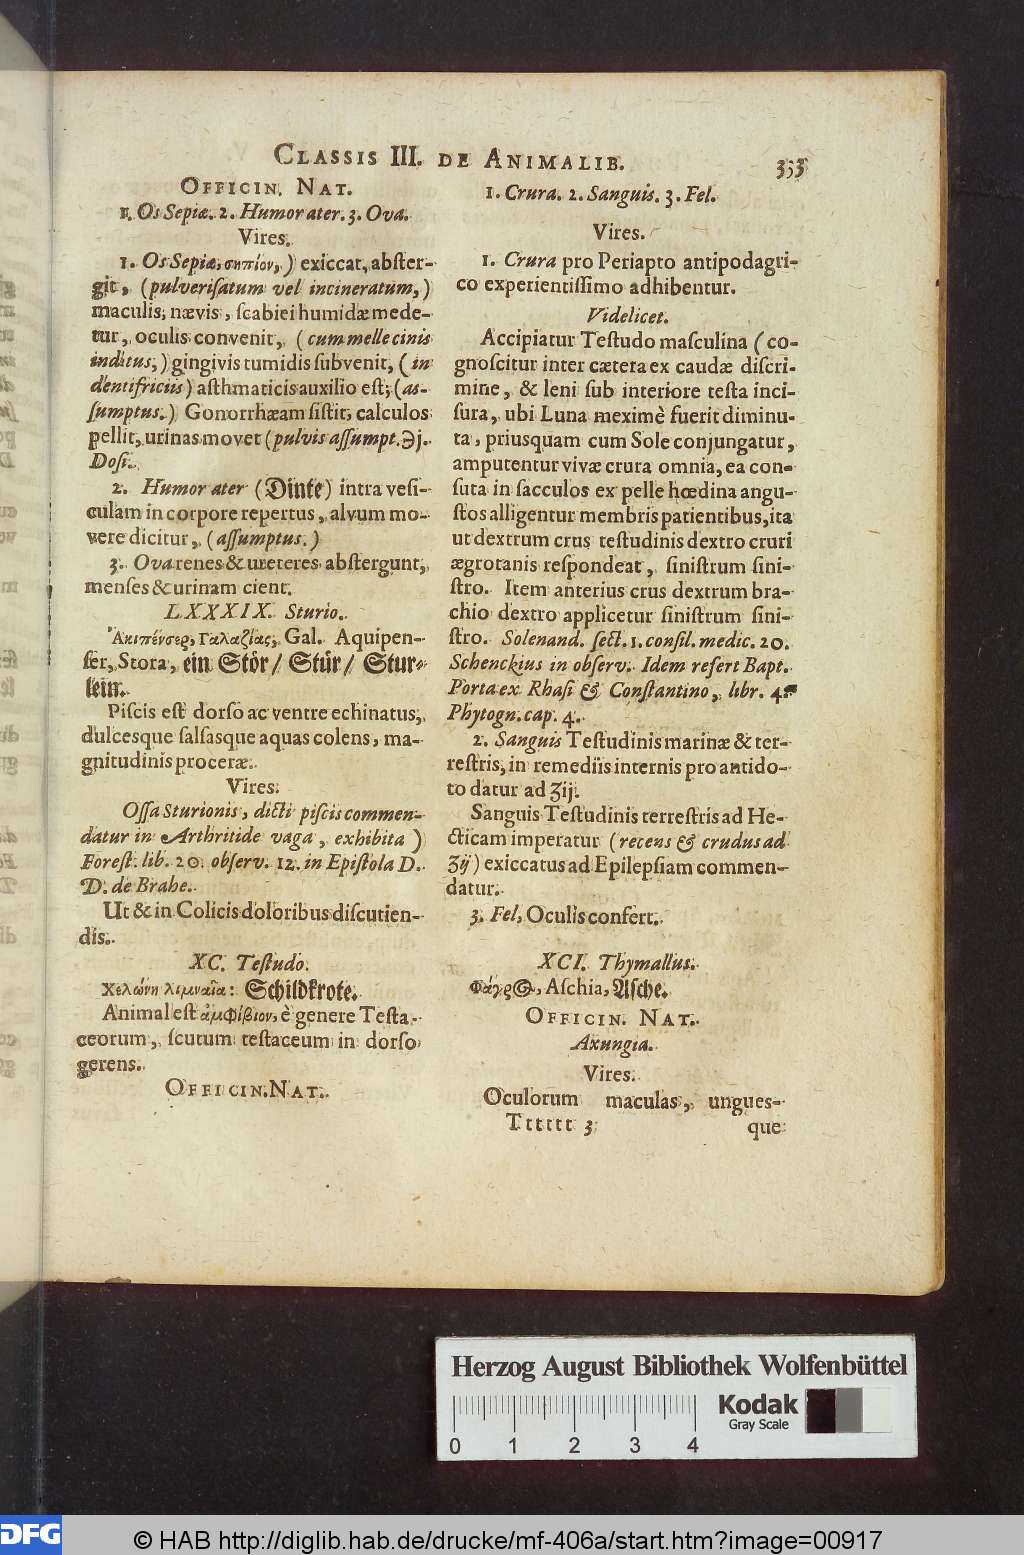 CLASSIS III. DE ANIMALIB. 353
OFFICIN. NAT.
1. Os Sepiæ. 2. Humor ater. 3. Ova.
Vires.
1. Os Sepiæ, σηπίον,) exiccat, abster-
git, (pulverisatum vel incineratum,)
maculis, nævis, scabiei humidæ mede-
tur, oculis convenit, (cum melle cinis
inditus,) gingivis tumidis subvenit, (in
dentifriciis) asthmaticis auxilio est, (as-
sumptus.) Gonorrhæam sistit, calculos
pellit, urinas movet (pulvis assumpt. ℈j.
Dosi.
2. Humor ater (Dinte) intra vesi-
culam in corpore repertus, alvum mo-
vere dicitur, (assumptus.)
3. Ova renes & ureteres abstergunt,
menses & urinam cient.
LXXXIX. Sturio.
Ἀκιπένσερ, Γαλαζίας, Gal. Aquipen-
ser, Stora, ein Stör/ Stür/ Stur-
lein.
Piscis est dorso ac ventre echinatus,
dulcesque salsasque aquas colens, ma-
gnitudinis proceræ.
Vires.
Ossa Sturionis, dicti piscis commen-
datur in Arthritide vaga, exhibita)
Forest. lib. 20. observ. 12. in Epistola D.
D. de Brahe.
Ut & in Colicis doloribus discutien-
dis.
XC. Testudo.
Χελώνη λιμναῖα: Schildkrote.
Animal est ἀμφίβιον, è genere Testa-
ceorum, scutum testaceum in dorso
gerens.
OFFICIN. NAT.
1. Crura. 2. Sanguis. 3. Fel.
Vires.
1. Crura pro Periapto antipodagri-
co experientissimo adhibentur.
Videlicet.
Accipiatur Testudo masculina (co-
gnoscitur inter cætera ex caudæ discri-
mine, & leni sub interiore testa inci-
sura, ubi Luna meximè fuerit diminu-
ta, priusquam cum Sole conjungatur,
amputentur vivæ crura omnia, ea con-
suta in sacculos ex pelle hœdina angu-
stos alligentur membris patientibus, ita
ut dextrum crus testudinis dextro cruri
ægrotanis respondeat, sinistrum sini-
stro. Item anterius crus dextrum bra-
chio dextro applicetur sinistrum sini-
stro. Solenand. sect. 1. consil. medic. 20.
Schenckius in observ. Idem refert Bapt.
Porta ex Rhasi & Constantino, libr. 4.
Phytogn. cap. 4.
2. Sanguis Testudinis marinæ & ter-
restris, in remediis internis pro antido-
to datur ad ʒij.
Sanguis Testudinis terrestris ad He-
cticam imperatur (recens & crudus ad
ʒij) exiccatus ad Epilepsiam commen-
datur.
3. Fel, Oculis confert.
XCI. Thymallus.
Φάγρος, Aschia, Asche.
OFFICIN. NAT.
Axungia.
Vires.
Oculorum maculas, ungues-
Tttttt 3 que
Herzog August Bibliothek Wolfenbüttel
Kodak
Gray Scale
0 1 2 3 4
DFG © HAB http://diglib.hab.de/drucke/mf-406a/start.htm?image=00917